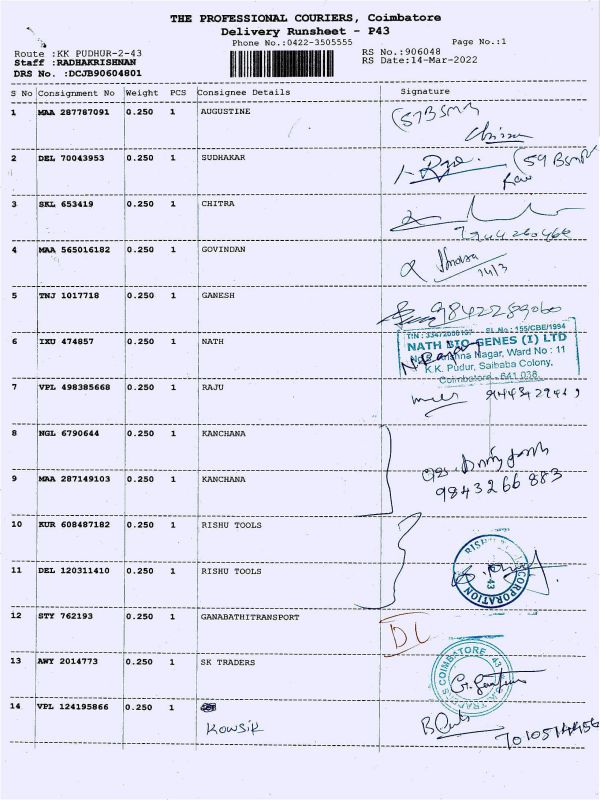 THE PROFESSIONAL COURIERS, Coimbatore
Delivery Runsheet - P43
Phone No.:0422-3505555 Page No.:1
Route :KK PUDHUR-2-43 RS No.:906048
Staff :RADHAKRISHNAN RS Date:14-Mar-2022
DRS No. :DCJB90604801
S No Consignment No Weight PCS Consignee Details Signature
1 MAA 287787091 0.250 1 AUGUSTINE (57 BSMR
2 DEL 70043953 0.250 1 SUDHAKAR (59 BSMR
3 SKL 653419 0.250 1 CHITRA
4 MAA 565016182 0.250 1 GOVINDAN
14/3
5 TNJ 1017718 0.250 1 GANESH 9842289060
6 IXU 474857 0.250 1 NATH
155/CBE/1994
NATH BIO-GENES (I) LTD
Nagar, Ward No : 11
K.K. Pudur, Saibaba Colony,
Coimbatore - 641 038.
7 VPL 498385668 0.250 1 RAJU
8 NGL 6790644 0.250 1 KANCHANA
9 MAA 287149103 0.250 1 KANCHANA 9843266883
10 KUR 608487182 0.250 1 RISHU TOOLS
11 DEL 120311410 0.250 1 RISHU TOOLS
RISHU CORPORATION 43
12 STY 762193 0.250 1 GANABATHITRANSPORT DL
13 AWY 2014773 0.250 1 SK TRADERS
COIMBATORE 43
14 VPL 124195866 0.250 1
Kowsik 7010574456